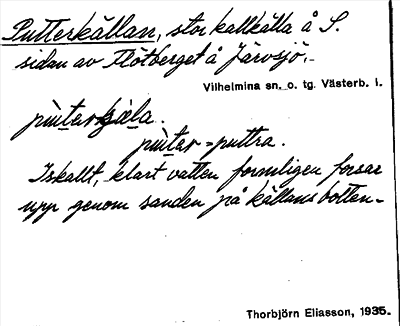 Putterkällan, stor kallkälla å S.
sidan av Flötberget å Järvsjö.-
Vilhelmina sn. o. tg. Västerb. l.
putar = puttra.
Iskallt, klart vatten formligen forsar
upp genom sanden på källans botten-
Thorbjörn Eliasson, 1935.